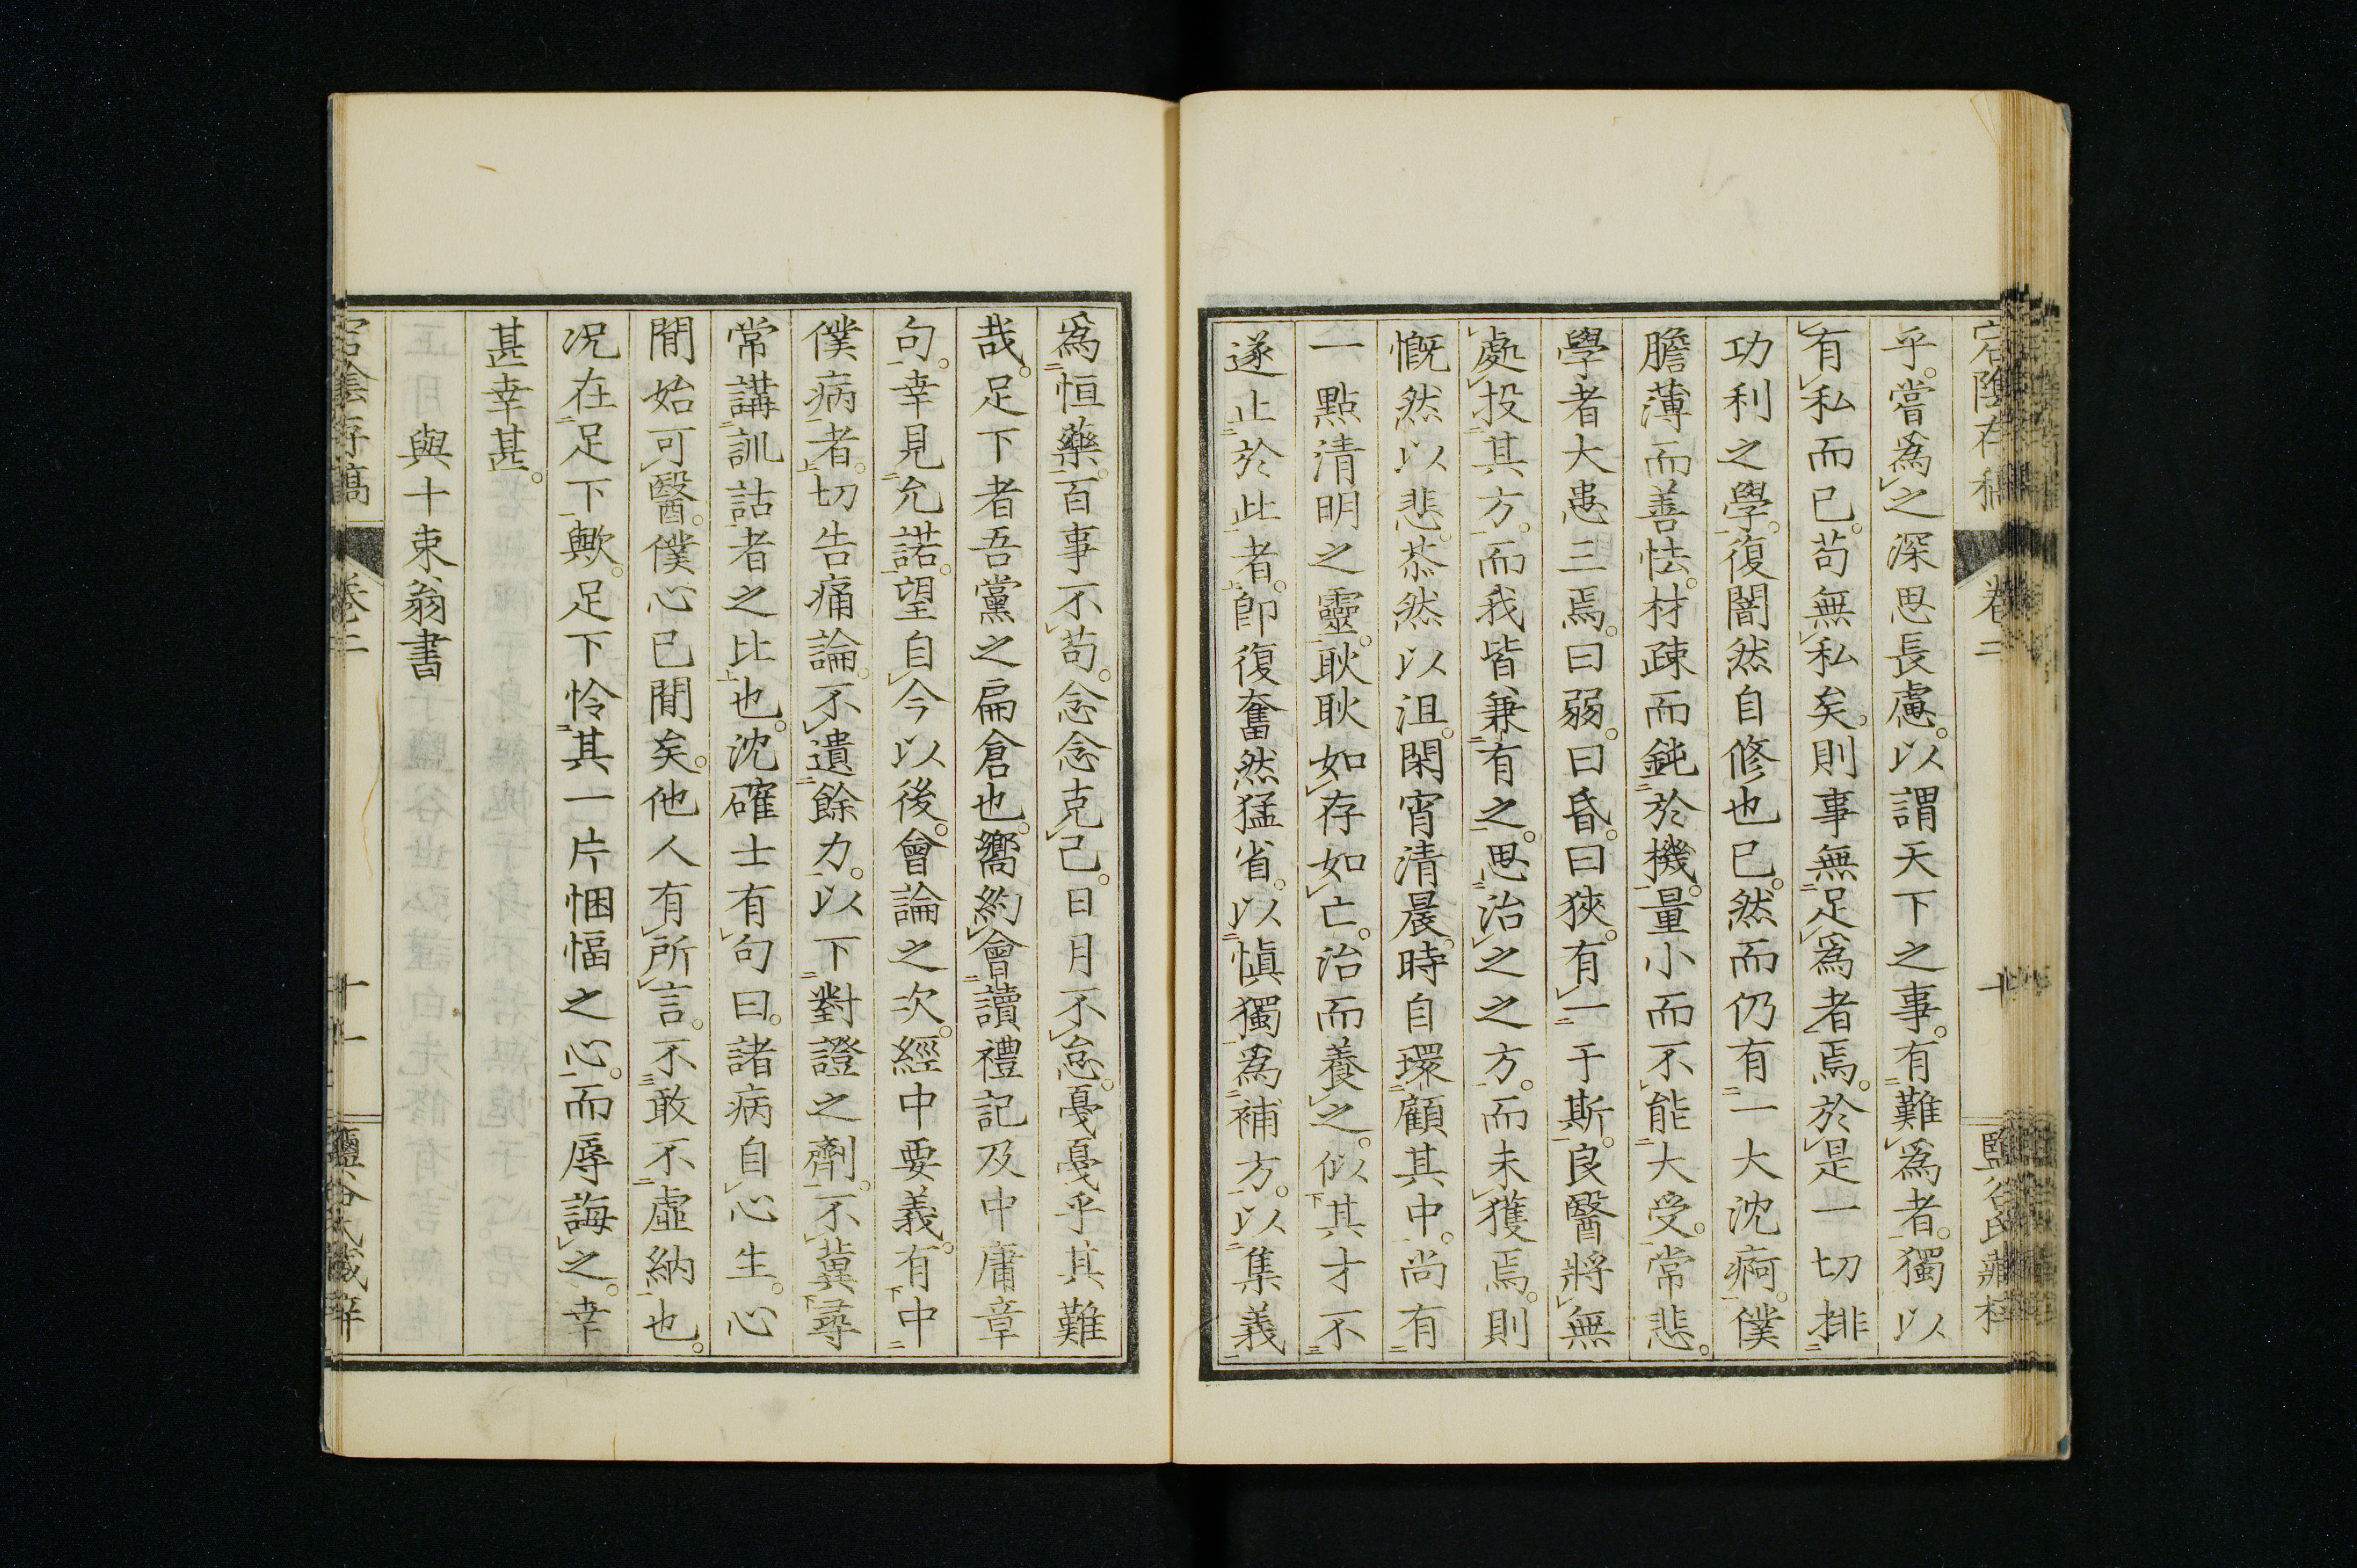 宕陰存稿 卷二 十 鹽谷氏藏梓
乎。嘗爲之深思長慮。以謂天下之事。有難爲者。獨以
有私而已。苟無私矣。則事無足爲者焉。於是一切排
功利之學。復闇然自修也已。然而仍有一大沈痾。僕
膽薄而善怯。材疎而鈍於機。量小而不能大受。常悲。
學者大患三焉。曰弱。曰昏。曰狹。有一于斯。良醫將無
處投其方。而我皆兼有之。思治之之方。而未獲焉。則
慨然以悲。恭然以沮。閑宵清晨。時自環顧其中。尚有
一點清明之靈。耿耿如存如亡。治而養之。似其才不
遂止於此者。卽復奮然猛省。以愼獨爲補方。以集義
爲恒藥。百事不苟。念念克己。日月不怠。憂憂乎其難
哉。足下者吾黨之扁倉也。嚮約會讀禮記及中庸章
句。幸見允諾。望自今以後。會論之次。經中要義。有中
僕病者。切告痛論。不遺餘力。以下對證之劑。不冀尋
常講訓詁者之比也。沈確士有句曰。諸病自心生。心
閒始可醫。僕心已閒矣。他人有所言。不敢不虛納也。
况在足下歟。足下怜其一片悃愊之心。而辱誨之。幸
甚幸甚。
與十束翁書
宕陰存稿 卷二 十一 鹽谷氏藏梓